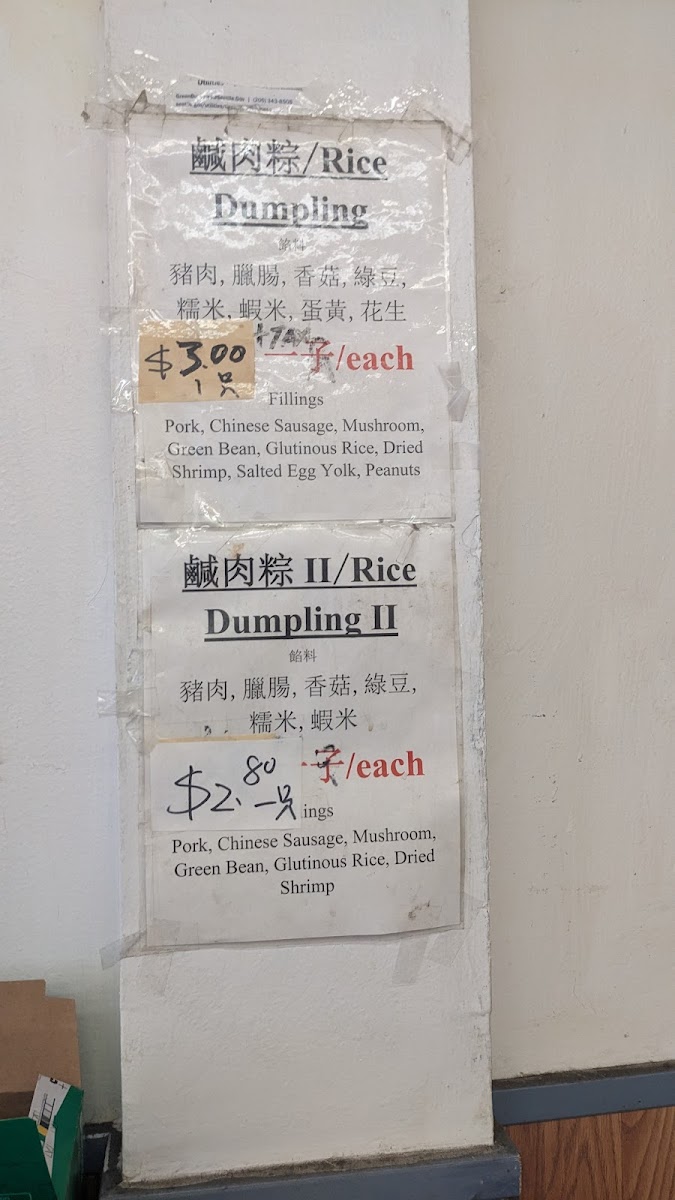 鹹肉粽/Rice
Dumpling
餡料
豬肉, 臘腸, 香菇, 綠豆,
糯米, 蝦米, 蛋黃, 花生
+TAX
$3.00
1只
一子/each
Fillings
Pork, Chinese Sausage, Mushroom,
Green Bean, Glutinous Rice, Dried
Shrimp, Salted Egg Yolk, Peanuts
鹹肉粽 II/Rice
Dumpling II
餡料
豬肉, 臘腸, 香菇, 綠豆,
糯米, 蝦米
$2.80 一只
子/each
ings
Pork, Chinese Sausage, Mushroom,
Green Bean, Glutinous Rice, Dried
Shrimp